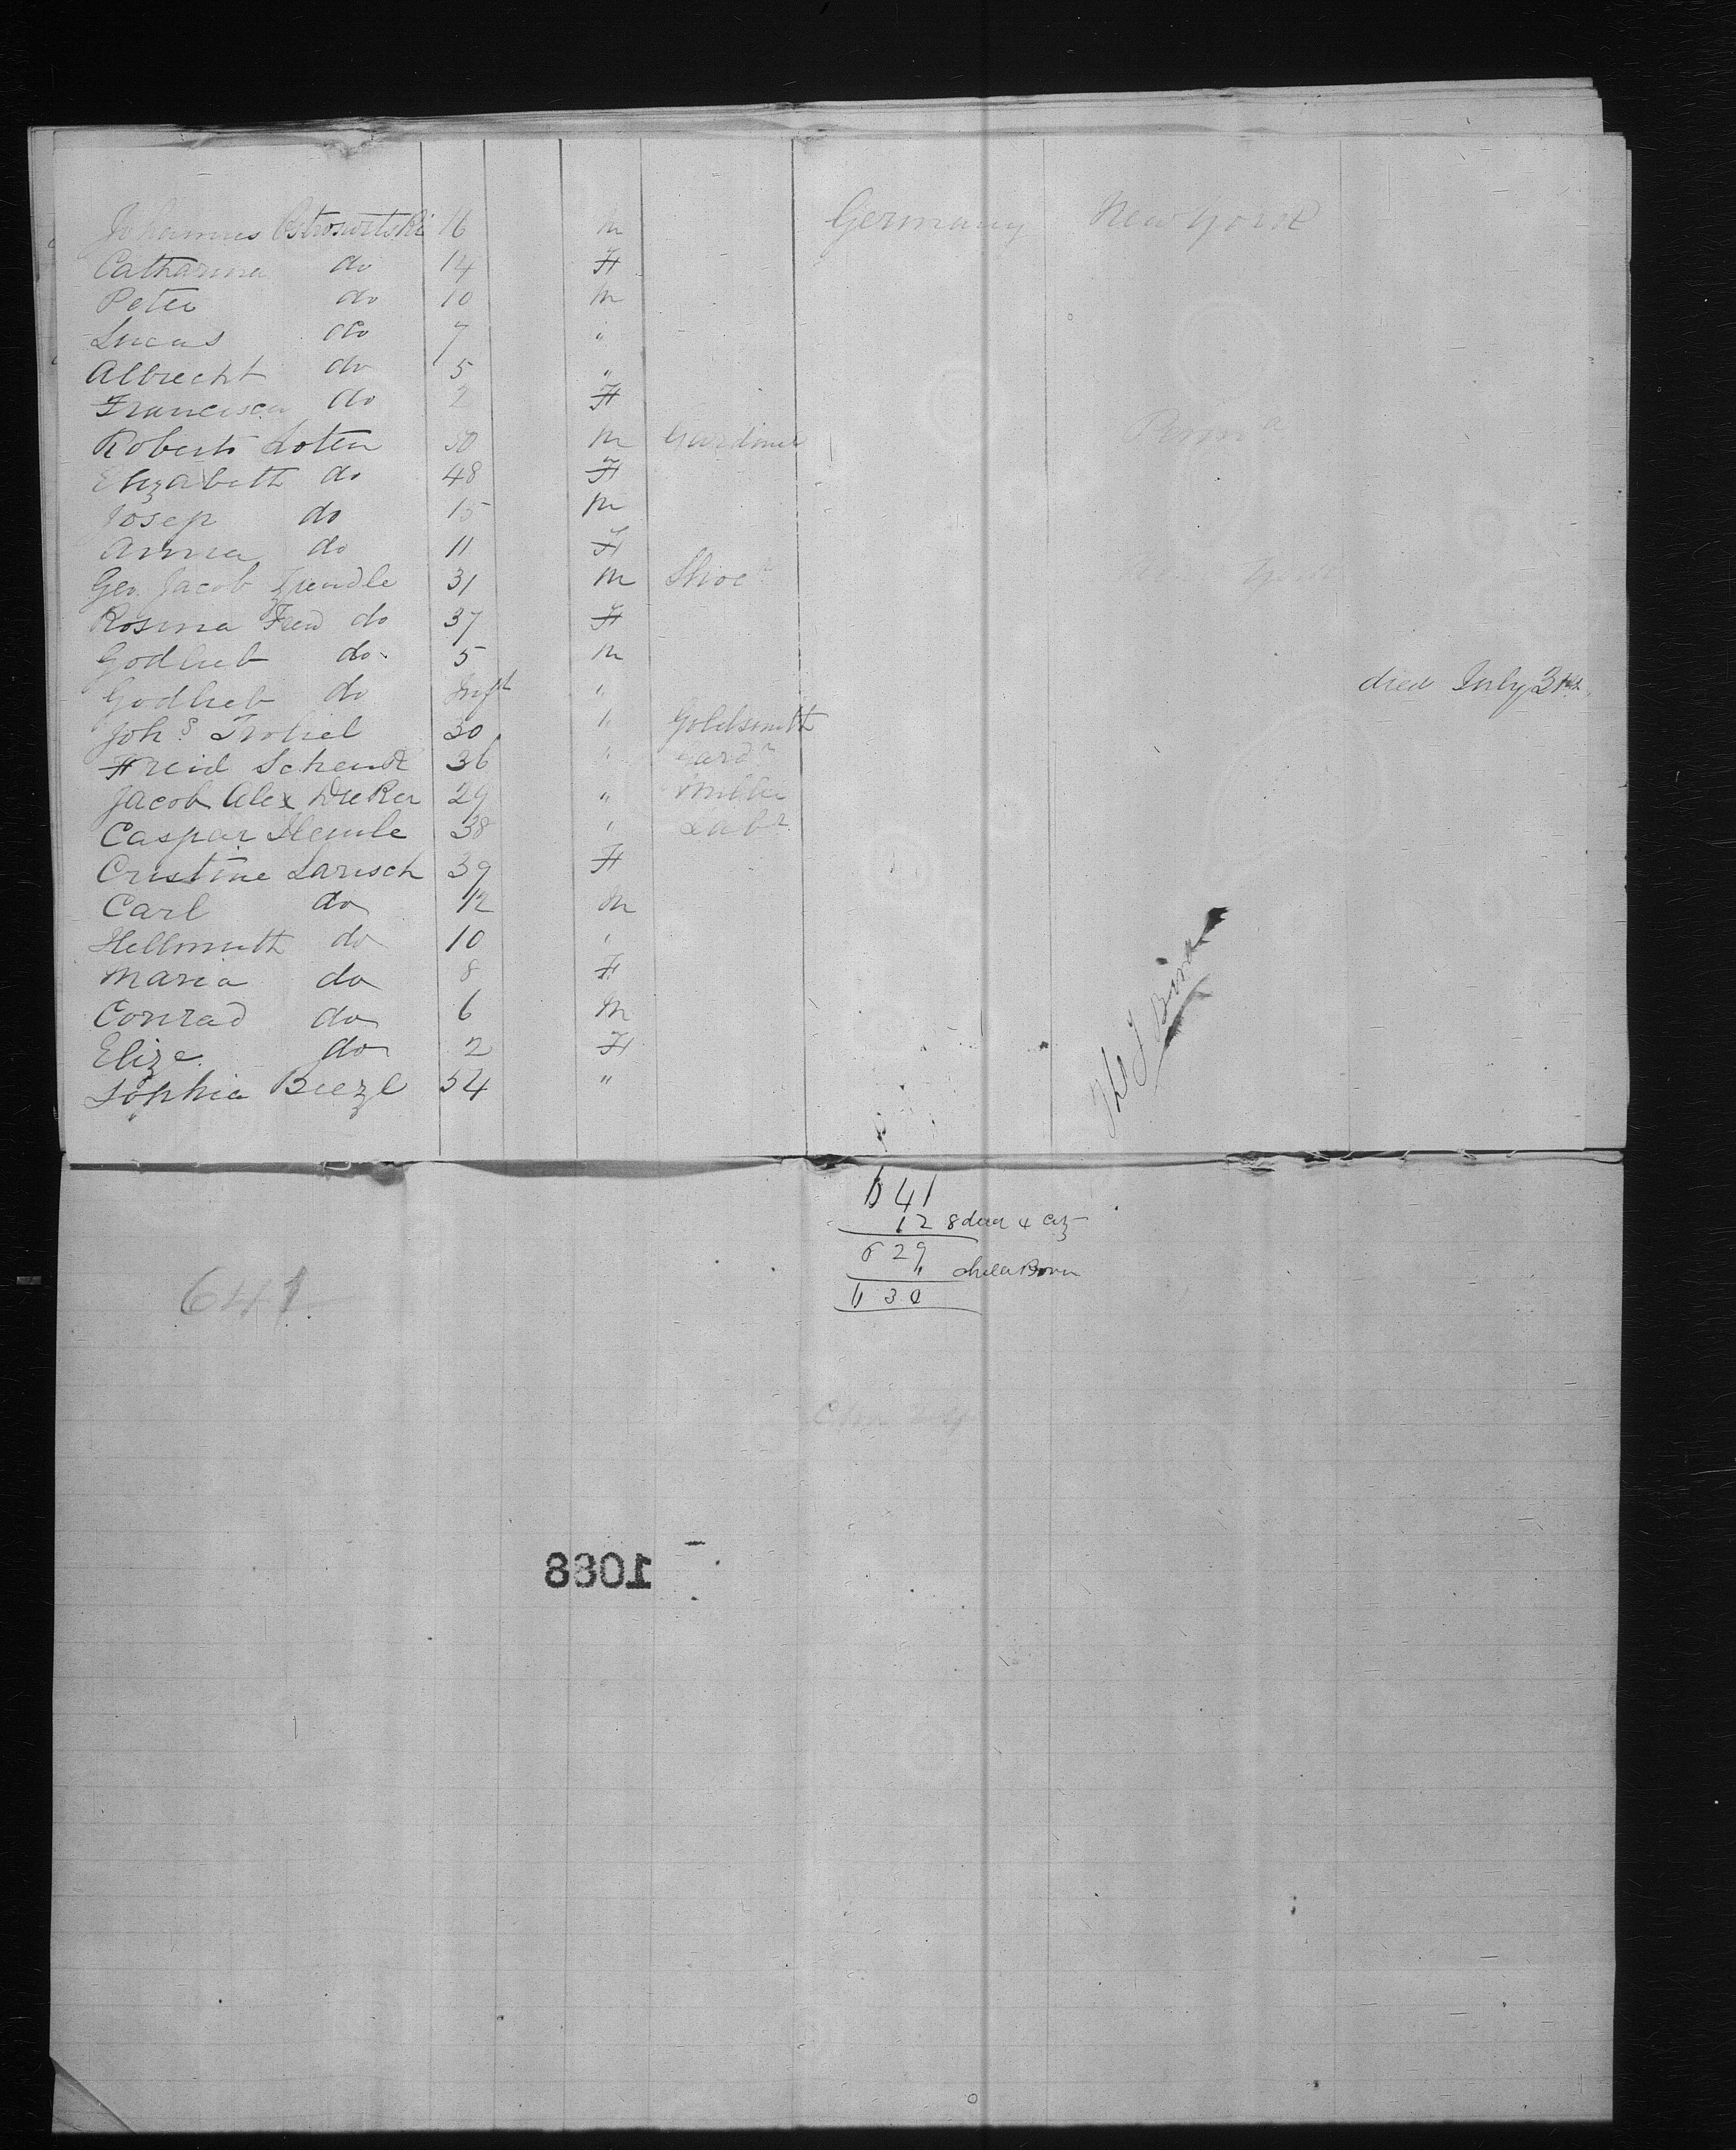 Johannes Ostrowitski 16 m Germany New York
Catharina do 14 F
Peter do 10 m
Lucas do 7 "
Albrecht do 5 "
Francisca do 2 F
Robert Loten 50 m Gardiner Penna
Elizabeth do 48 F
Josep do 15 m
Anna do 11 F
Geo. Jacob 31 m Shoer York
Rosina do 37 F
Godlieb do 5 m
Godlieb do Inft " died July 31st
Johs 30 " Goldsmith
Freid Schenk 36 " Gardr
Jacob Alex Dieker 29 " Miller
Caspar 38 " Labr
Cristine Larisch 39 F
Carl do 12 m
Hellmuth do 10 "
Maria do 8 F
Conrad do 6 m
Elize do 2 F
Sophia Biezl 54 "
641
12 8 dead & Ctz
629
" child Born
630
641
1088